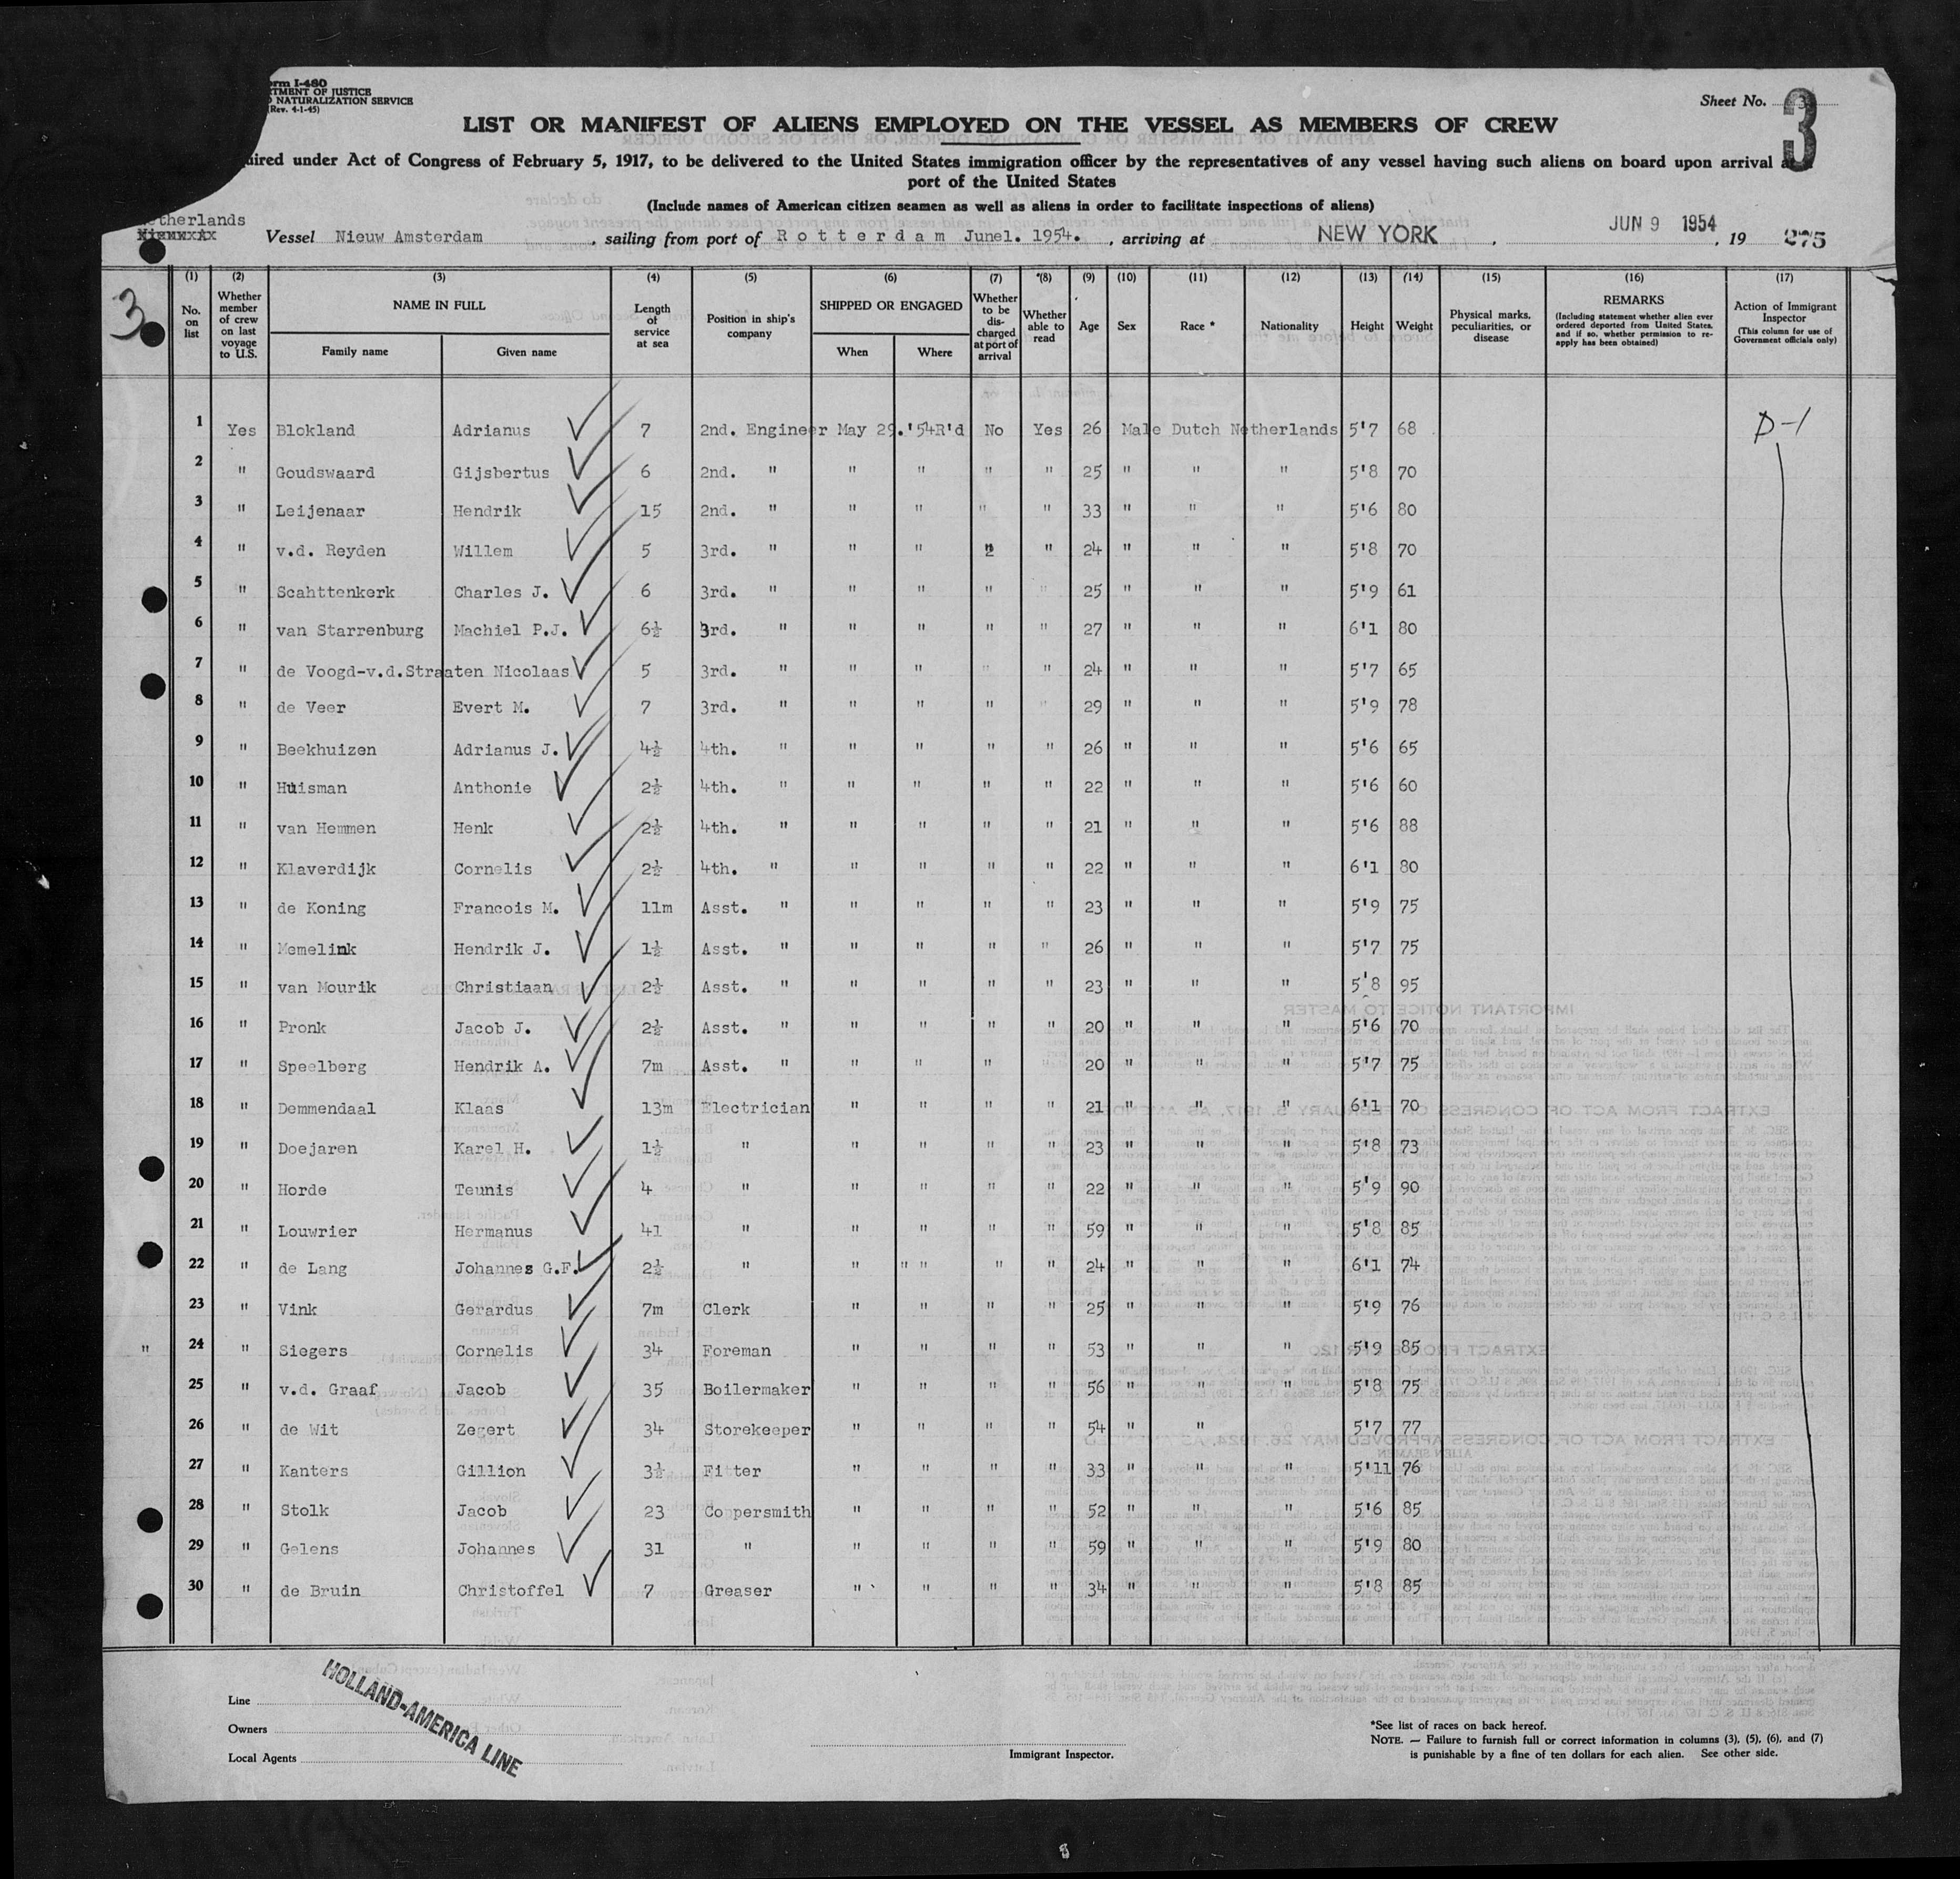 Form I-480
TMENT OF JUSTICE
NATURALIZATION SERVICE
(Rev. 4-1-45)
Sheet No. 3
3
LIST OR MANIFEST OF ALIENS EMPLOYED ON THE VESSEL AS MEMBERS OF CREW
uired under Act of Congress of February 5, 1917, to be delivered to the United States immigration officer by the representatives of any vessel having such aliens on board upon arrival
port of the United States
(Include names of American citizen seamen as well as aliens in order to facilitate inspections of aliens)
etherlands
Vessel Nieuw Amsterdam , sailing from port of Rotterdam June1. 1954. , arriving at NEW YORK , JUN 9 1954 , 19 275
3
(1) (2) (3) (4) (5) (6) (7) *(8) (9) (10) (11) (12) (13) (14) (15) (16) (17)
No. on list Whether member of crew on last voyage to U.S. NAME IN FULL Family name Given name Length of service at sea Position in ship's company SHIPPED OR ENGAGED When Where Whether to be discharged at port of arrival Whether able to read Age Sex Race * Nationality Height Weight Physical marks, peculiarities, or disease REMARKS (Including statement whether alien ever ordered deported from United States, and if so, whether permission to re-apply has been obtained) Action of Immigrant Inspector (This column for use of Government officials only)
1 Yes Blokland Adrianus 7 2nd. Engineer May 29.'54 R'd No Yes 26 Male Dutch Netherlands 5'7 68 D-1
2 " Goudswaard Gijsbertus 6 2nd. " " " " " 25 " " " 5'8 70
3 " Leijenaar Hendrik 15 2nd. " " " " " 33 " " " 5'6 80
4 " v.d. Reyden Willem 5 3rd. " " " " " 24 " " " 5'8 70
5 " Scahttenkerk Charles J. 6 3rd. " " " " " 25 " " " 5'9 61
6 " van Starrenburg Machiel P.J. 6½ 3rd. " " " " " 27 " " " 6'1 80
7 " de Voogd-v.d.Straaten Nicolaas 5 3rd. " " " " " 24 " " " 5'7 65
8 " de Veer Evert M. 7 3rd. " " " " " 29 " " " 5'9 78
9 " Beekhuizen Adrianus J. 4½ 4th. " " " " " 26 " " " 5'6 65
10 " Huisman Anthonie 2½ 4th. " " " " " 22 " " " 5'6 60
11 " van Hemmen Henk 2½ 4th. " " " " " 21 " " " 5'6 88
12 " Klaverdijk Cornelis 2½ 4th. " " " " " 22 " " " 6'1 80
13 " de Koning Francois M. 11m Asst. " " " " " 23 " " " 5'9 75
14 " Memelink Hendrik J. 1½ Asst. " " " " " 26 " " " 5'7 75
15 " van Mourik Christiaan 2½ Asst. " " " " " 23 " " " 5'8 95
16 " Pronk Jacob J. 2½ Asst. " " " " " 20 " " " 5'6 70
17 " Speelberg Hendrik A. 7m Asst. " " " " " 20 " " " 5'7 75
18 " Demmendaal Klaas 13m Electrician " " " " 21 " " " 6'1 70
19 " Doejaren Karel H. 1½ " " " " " 23 " " " 5'8 73
20 " Horde Teunis 4 " " " " " 22 " " " 5'9 90
21 " Louwrier Hermanus 41 " " " " " 59 " " " 5'8 85
22 " de Lang Johannes G.F. 2½ " " " " " " 24 " " " 6'1 74
23 " Vink Gerardus 7m Clerk " " " " 25 " " " 5'9 76
" 24 " Siegers Cornelis 34 Foreman " " " " 53 " " " 5'9 85
25 " v.d. Graaf Jacob 35 Boilermaker " " " " 56 " " " 5'8 75
26 " de Wit Zegert 34 Storekeeper " " " " 54 " " " 5'7 77
27 " Kanters Gillion 3½ Fitter " " " " 33 " " " 5'11 76
28 " Stolk Jacob 23 Coppersmith " " " " 52 " " " 5'6 85
29 " Gelens Johannes 31 " " " " " 59 " " " 5'9 80
30 " de Bruin Christoffel 7 Greaser " " " " 34 " " " 5'8 85
HOLLAND-AMERICA LINE
Line
Owners
Local Agents
Immigrant Inspector.
*See list of races on back hereof.
NOTE. — Failure to furnish full or correct information in columns (3), (5), (6), and (7)
is punishable by a fine of ten dollars for each alien. See other side.